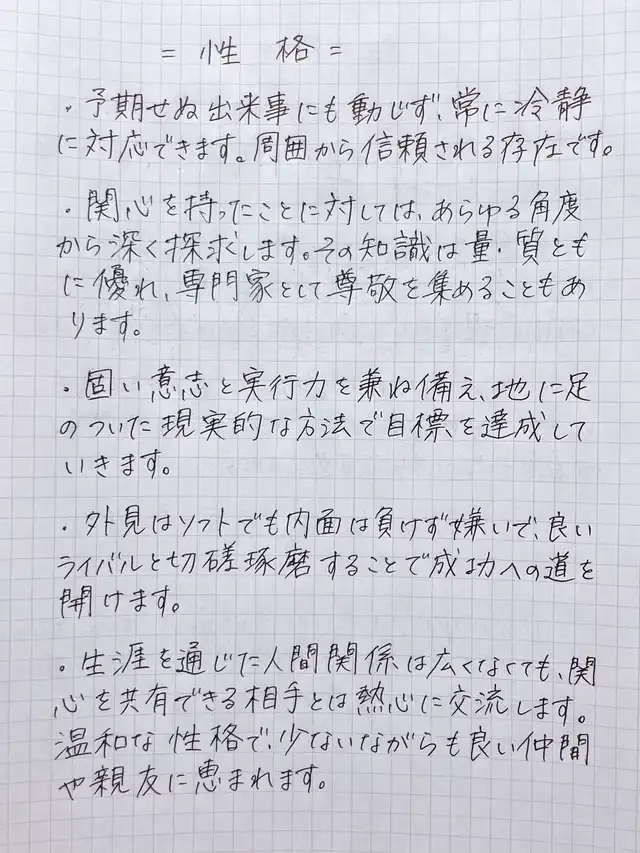 = 性 格 =
・予期せぬ出来事にも動じず、常に冷静
に対応できます。周囲から信頼される存在です。
・関心を持ったことに対しては、あらゆる角度
から深く探求します。その知識は量・質とも
に優れ、専門家として尊敬を集めることもあ
ります。
・固い意志と実行力を兼ね備え、地に足
のついた現実的な方法で目標を達成して
いきます。
・外見はソフトでも内面は負けず嫌いで、良い
ライバルと切磋琢磨することで成功への道を
開けます。
・生涯を通じた人間関係は広くなくても、関
心を共有できる相手とは熱心に交流します。
温和な性格で、少ないながらも良い仲間
や親友に恵まれます。